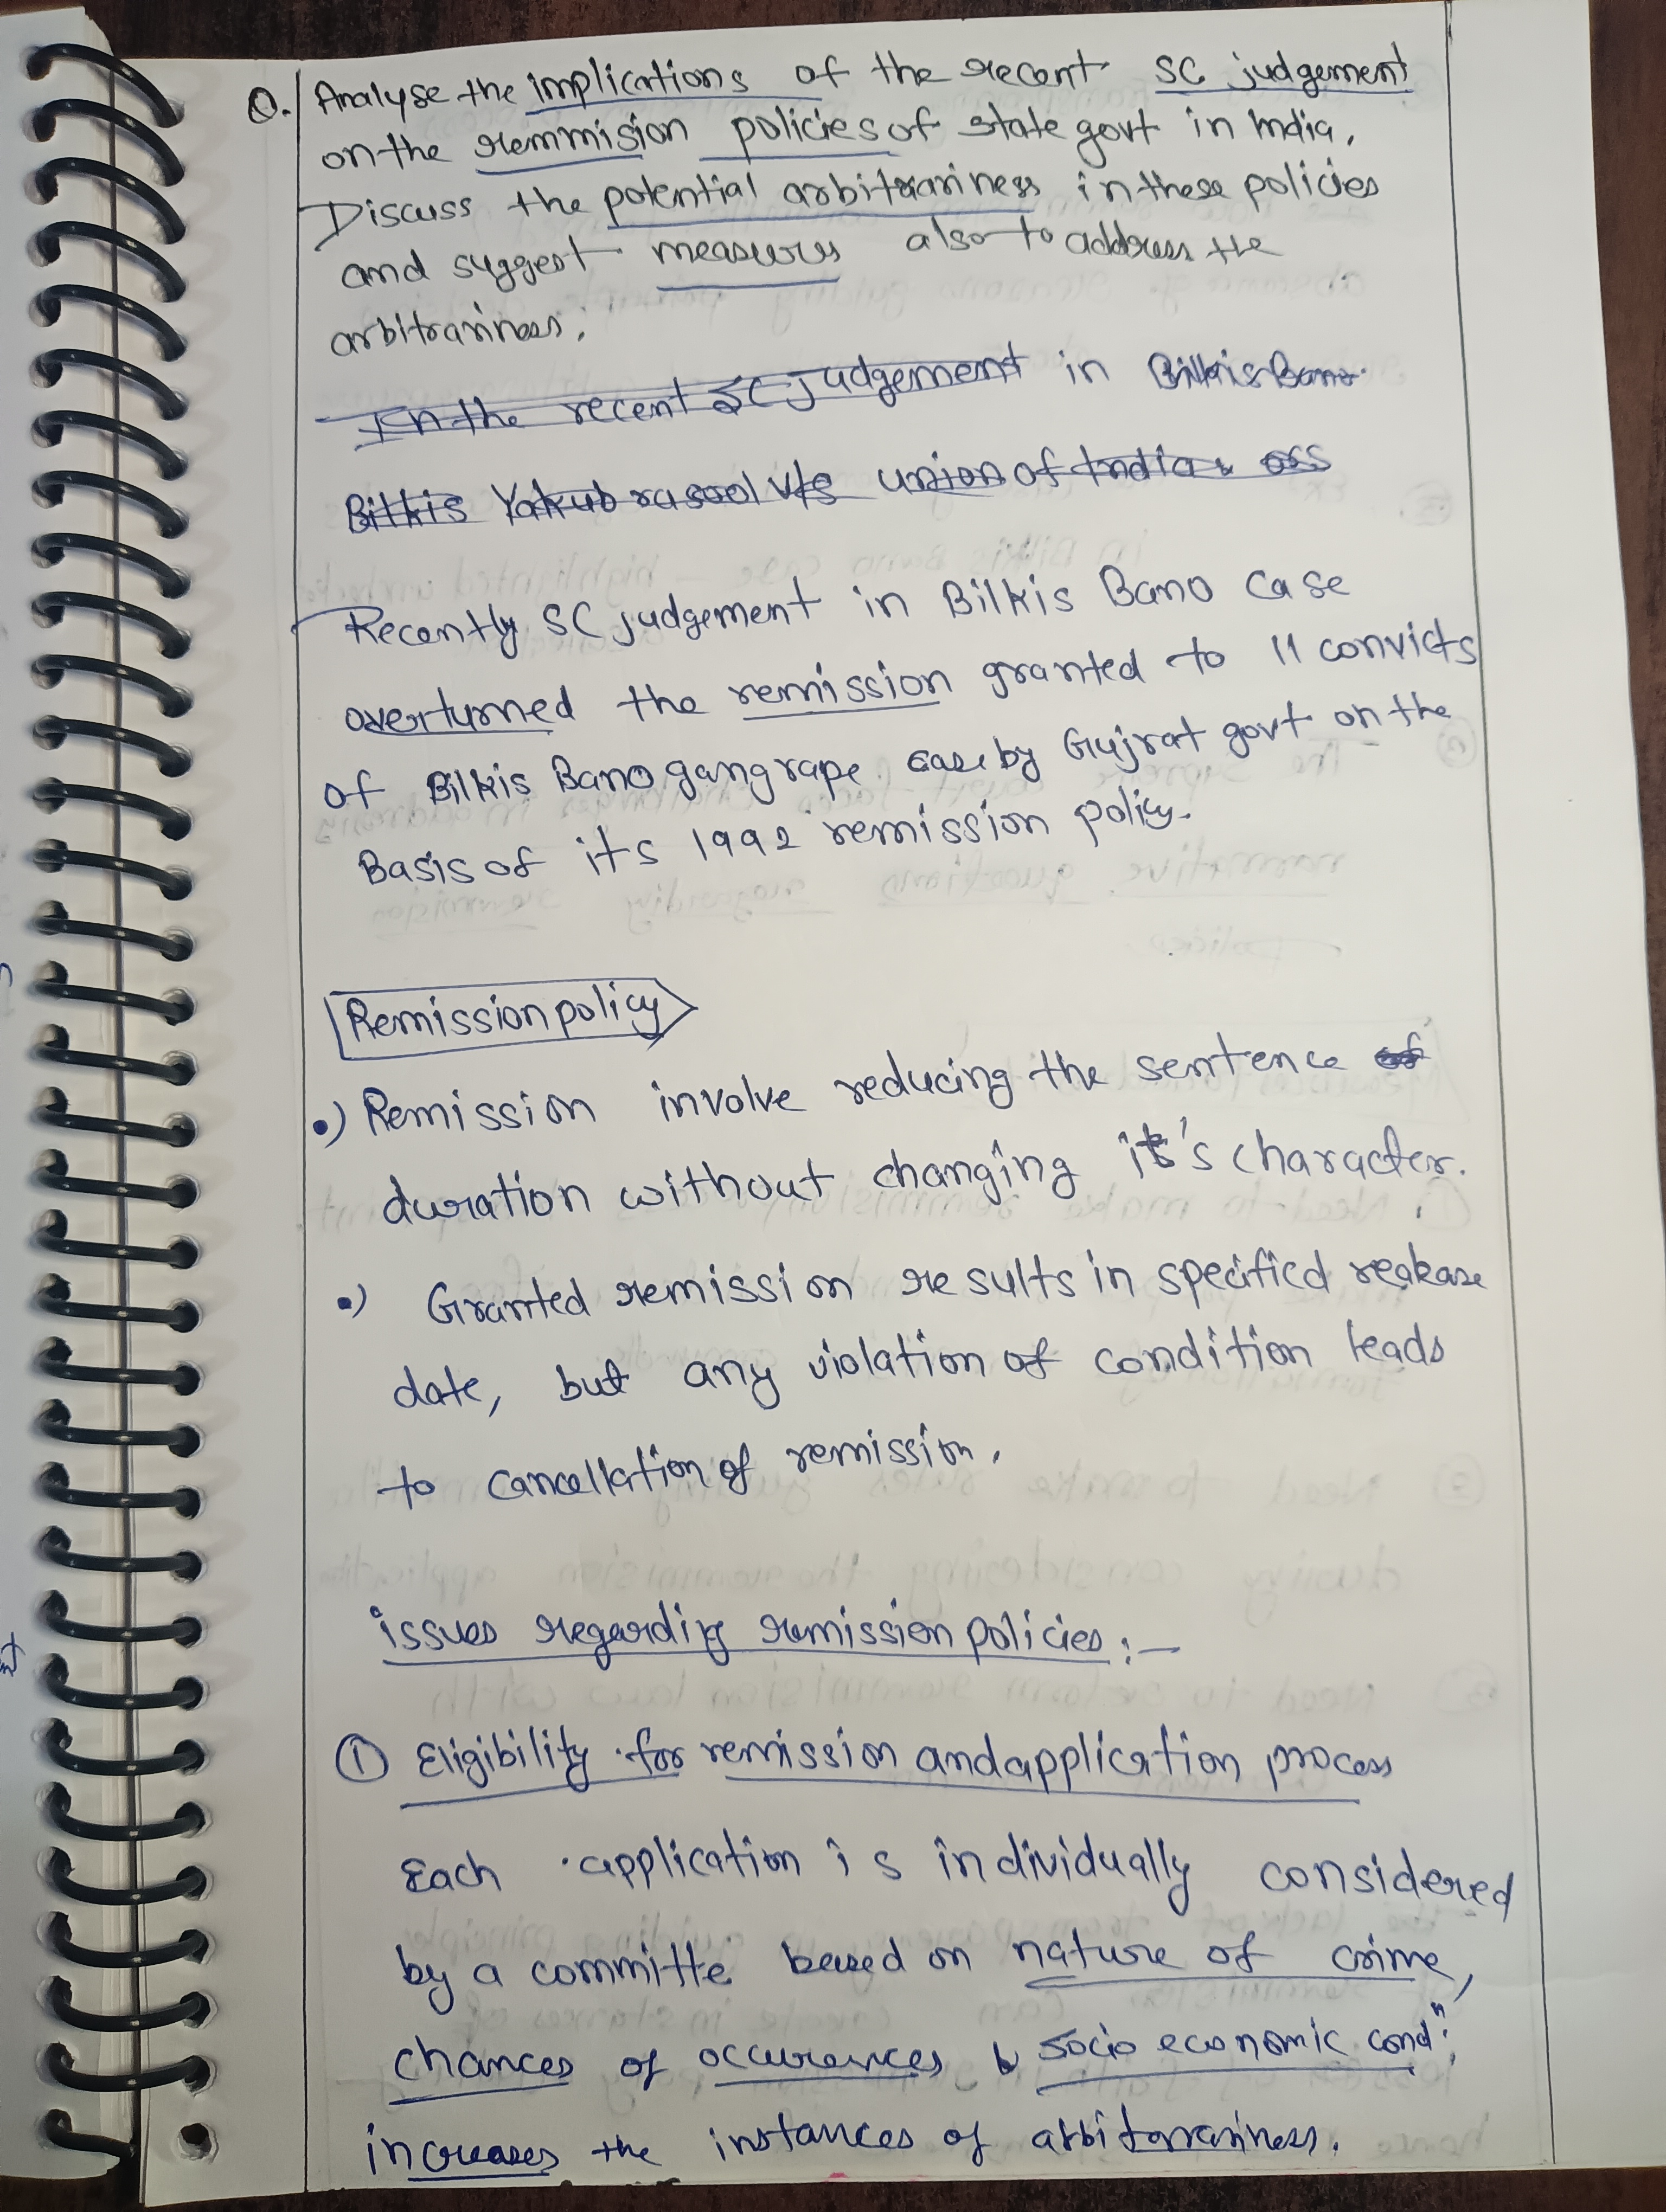 Q. Analyse the implications of the recent SC judgement
on the remmision policies of state govt in India.
Discuss the potential arbitrariness in these policies
and suggest measures also to address the
arbitrariness.
In the recent SC judgement in Bilkis Bano
Bilkis Yakub rasool v/s union of India
Recently SC judgement in Bilkis Bano case
overturned the remission granted to 11 convicts
of Bilkis Bano gangrape case by Gujrat govt on the
Basis of its 1992 remission policy.
Remission policy
•) Remission involve reducing the sentence of
duration without changing it's character.
•) Granted remission results in specified release
date, but any violation of condition leads
to cancellation of remission.
issues regarding remission policies :-
① Eligibility for remission and application process
Each application is individually considered
by a committe based on nature of crime,
chances of occurences & socio economic condⁿ;
increases the instances of arbitrariness.